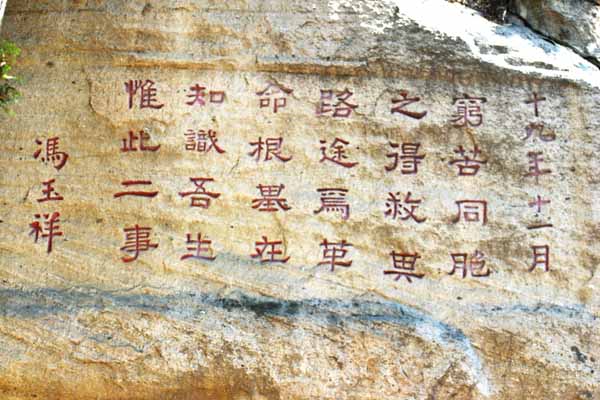 十九年十一月
窮苦同胞
之得救其
路途爲革
命根基在
知識吾生
惟此二事
馮玉祥